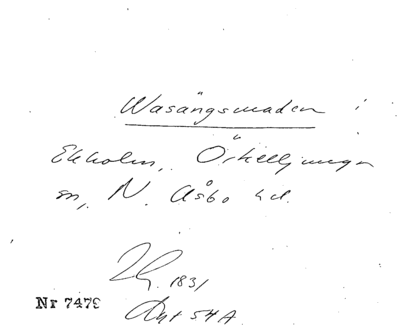 Wasängsmaden i
Ekholm, Örkelljunga
sn, N. Åsbo hd.
1831
Nr 7479
Akt 54A